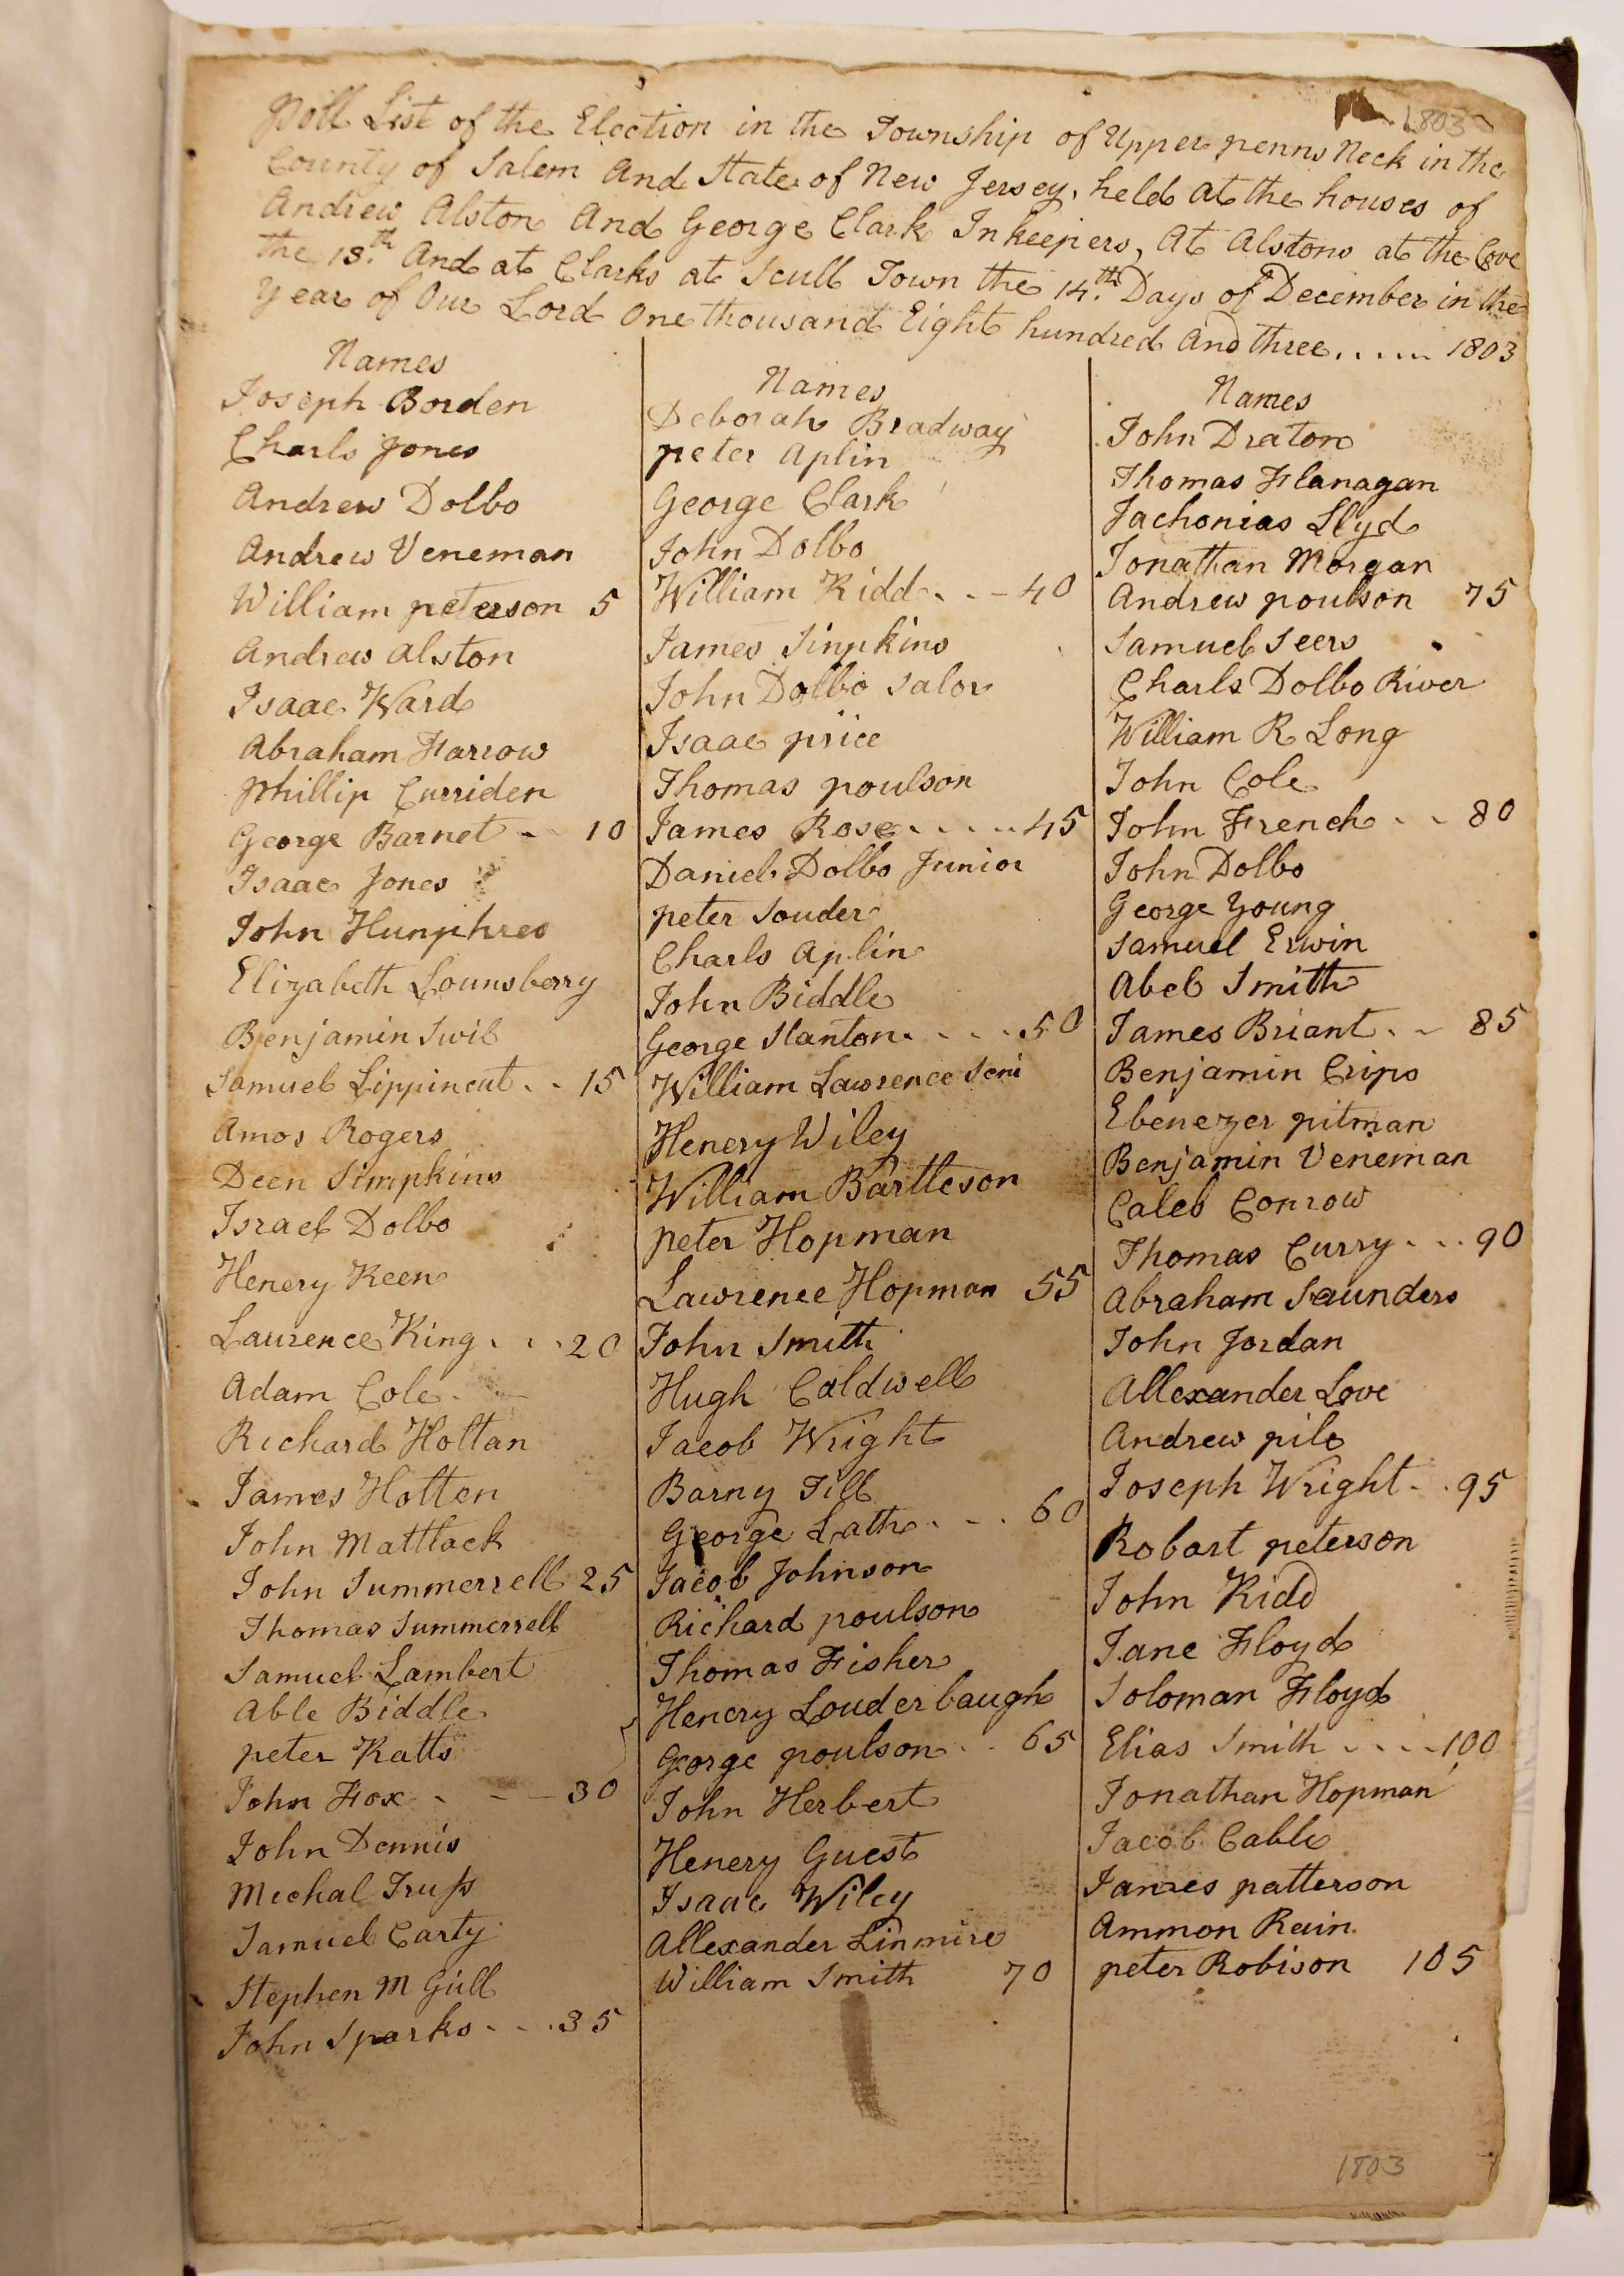 1803
Poll List of the Election in the Township of Upper penns Neck in the
County of Salem And State of New Jersey, held at the houses of
Andrew Alston And George Clark Inkeepers, At Alstons at the Cove
the 13.th And at Clarks at Scull Town the 14.th Days of December in the
Year of Our Lord One thousand Eight hundred And three..... 1803
Names
Joseph Borden
Charls Jones
Andrew Dolbo
Andrew Veneman
William peterson 5
Andrew Alston
Isaac Ward
Abraham Farrow
Phillip Curriden
George Barnet - - 10
Isaac Jones
John Humphres
Elizabeth Lounsberry
Benjamin Swil
Samuel Lippincut . . 15
Amos Rogers
Deen Simpkins
Israel Dolbo
Henery Keen
Laurence King . . . 20
Adam Cole
Richard Holtan
James Holten
John Mattlack
John Summerrell 25
Thomas Summerrell
Samuel Lambert
Able Biddle
peter Katts
John Fox - - - 30
John Dennis
Mechal Truss
Samuel Carty
Stephen M Gill
John Sparks - - . 35
Names
Deborah Bradway
peter Aplin
George Clark
John Dolbo
William Kidd . . - 40
James Simpkins
John Dolbo Salor
Isaac price
Thomas poulson
James Rose . . . . . 45
Daniel Dolbo Junior
peter Souder
Charls Aplin
John Biddle
George Stanton . . . . 50
William Lawrence Seni
Henery Wiley
William Bartleson
peter Hopman
Lawrence Hopman 55
John Smith
Hugh Caldwell
Jacob Wright
Barny Till
George Lath . - . 60
Jacob Johnson
Richard poulson
Thomas Fisher
Henery Louderbaugh
George poulson . . 65
John Herbert
Henery Guest
Isaac Wiley
Allexander Linmire
William Smith 70
Names
John Draton
Thomas Flanagan
Jachonias Llyd
Jonathan Morgan
Andrew poulson 75
Samuel Seers
Charls Dolbo River
William R Long
John Cole
John French . . 80
John Dolbo
George Young
Samuel Erwin
Abel Smith
James Briant . - 85
Benjamin Crips
Ebenezer pitman
Benjamin Veneman
Caleb Conrow
Thomas Curry . . . 90
Abraham Saunders
John Jordan
Allexander Love
Andrew pile
Joseph Wright . . 95
Robart peterson
John Kidd
Jane Floyd
Soloman Floyd
Elias Smith . . . . 100
Jonathan Hopman
Jacob Cable
James patterson
Ammon Rain
peter Robison 105
1803